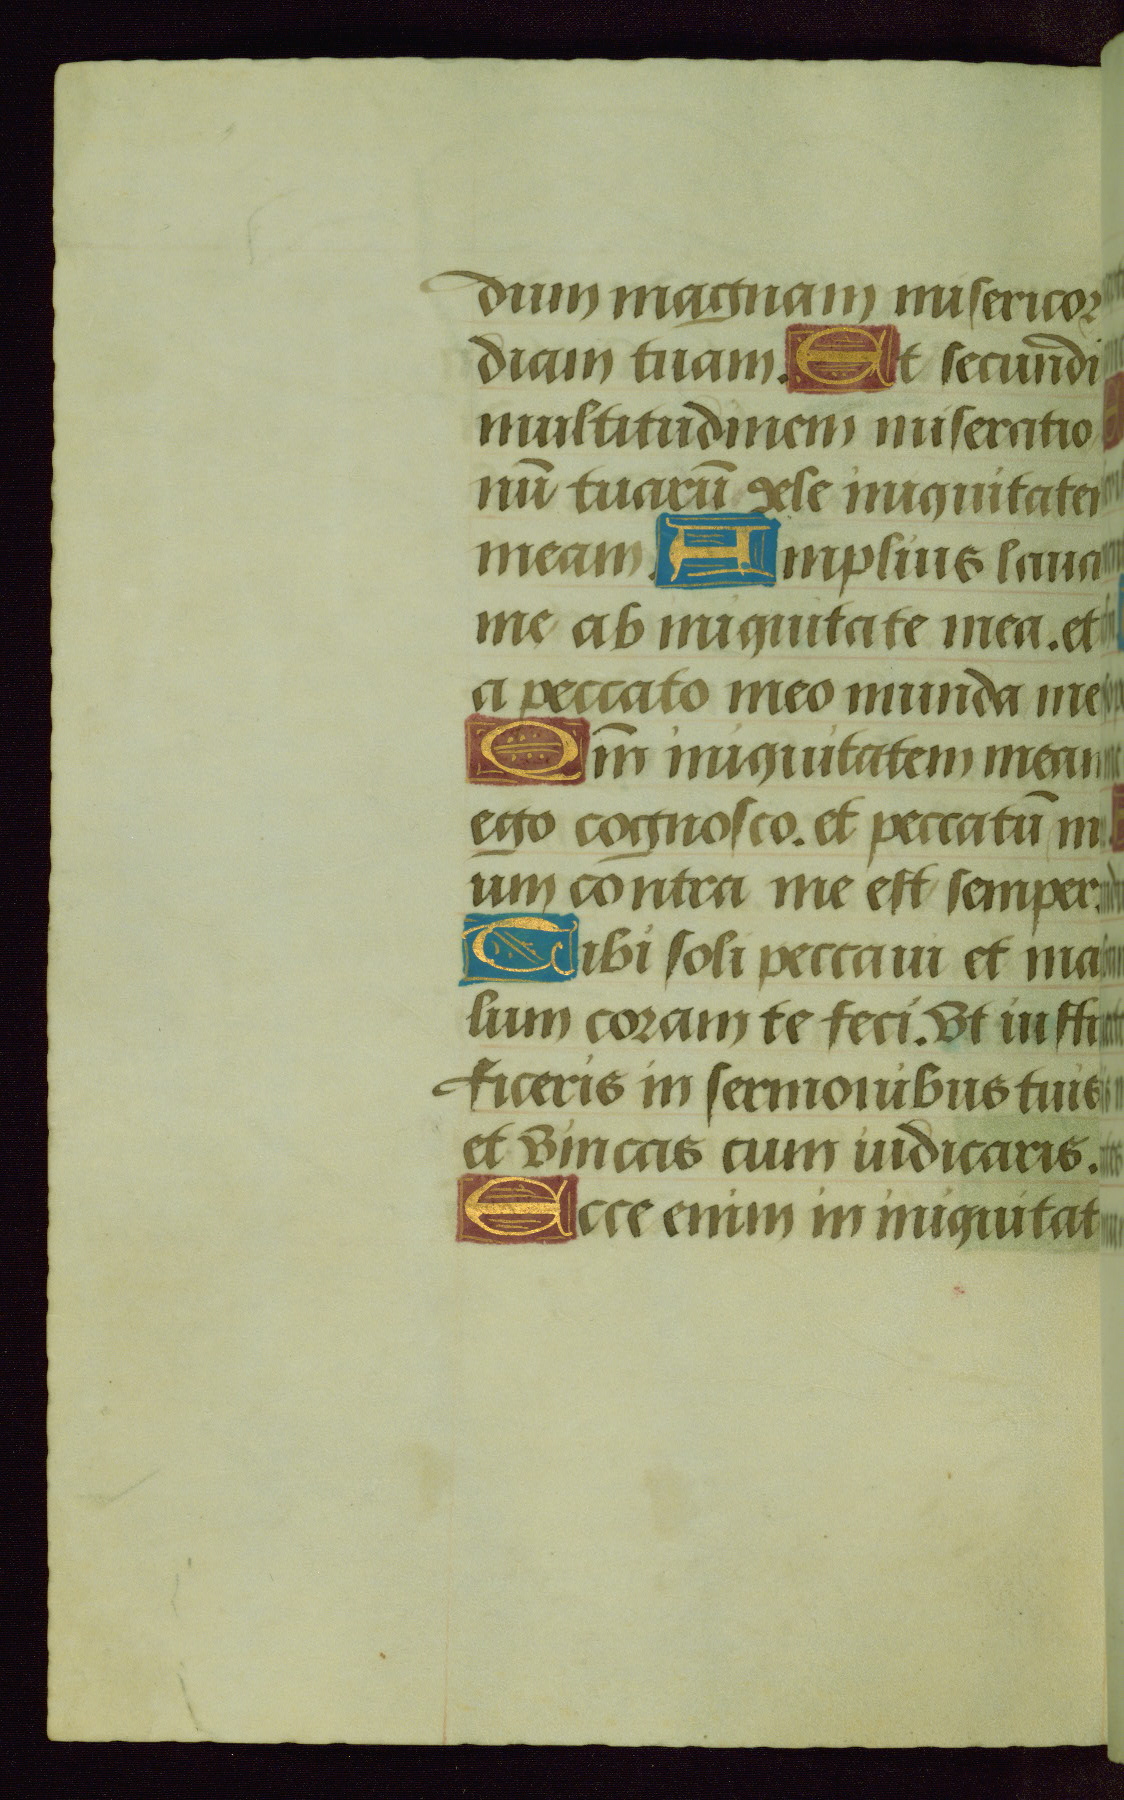 dum magnam misericor
diam tuam. Et secundū
multitudinem miseratio
nū tuarū dele iniquitatem
meam. Amplius laua
me ab iniquitate mea. et
a peccato meo munda me
Qm̄ iniquitatem meam
ego cognosco. et peccatū m
um contra me est semper.
Tibi soli peccaui et ma
lum coram te feci. Vt iusti
ficeris in sermonibus tuis
et vincas cum iudicaris.
Ecce enim in iniquitat